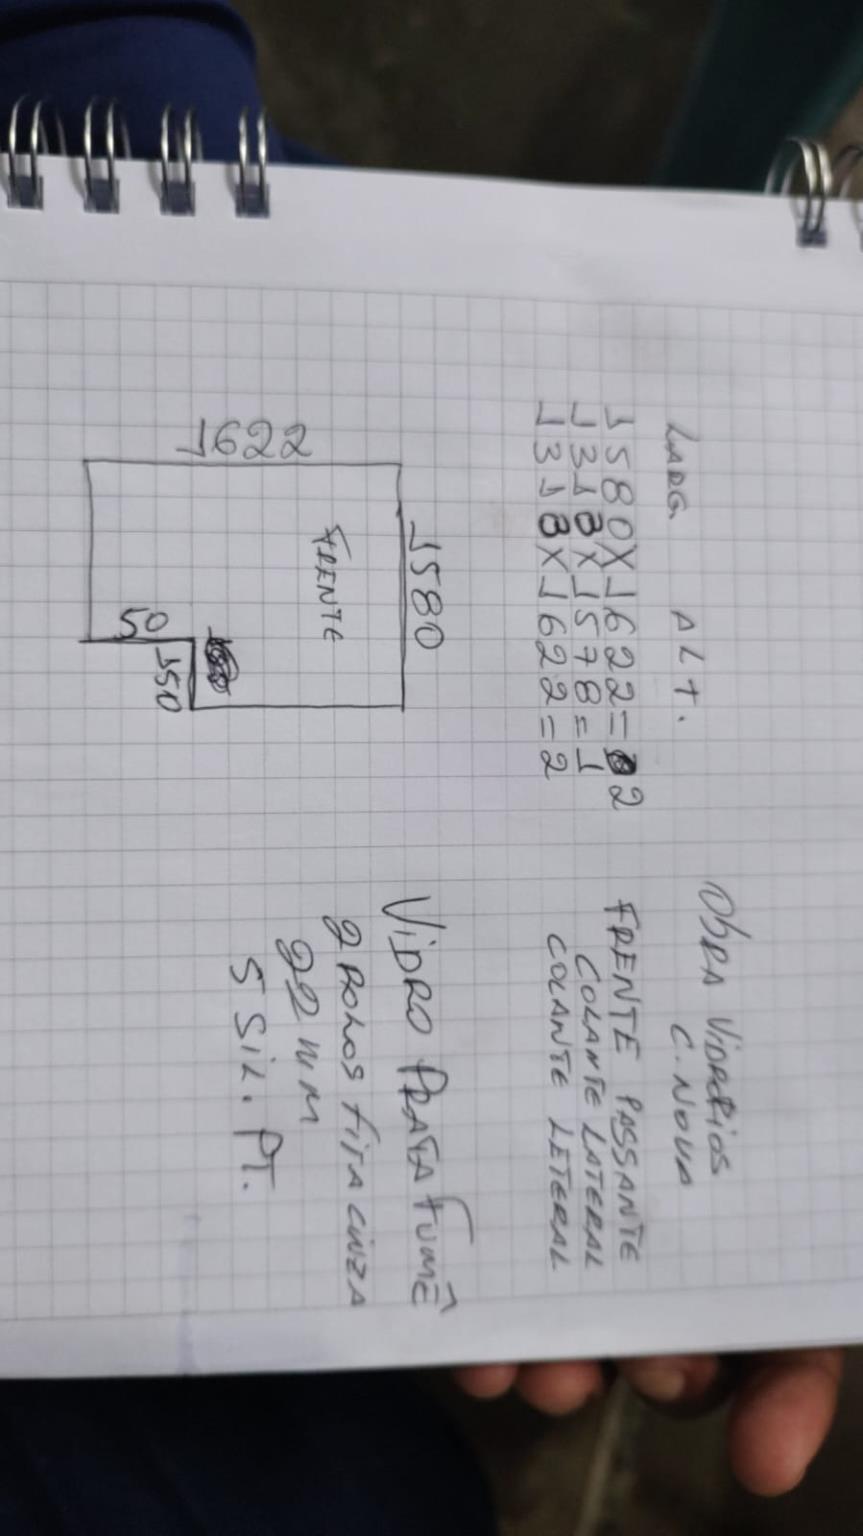 Obra Vidrerios
C. Nova
LARG ALT.
1580X1622=2 FRENTE PASSANTE
1318X1578=1 COLANTE LATERAL
1318X1622=2 COLANTE LETERAL
1580
FRENTE
1622
50
150
VIDRO PRATA FUMÊ
2 ROLOS FITA CINZA
22 MM
5 SIL. PT.